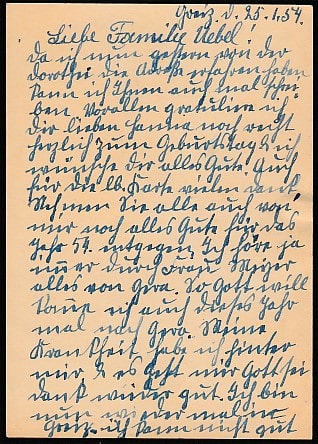 Greiz. d. 25.1.54.
Liebe Familie Uebel!
Da ich nun gestern von der
Dorothee die Adreße erfahren haben
kann ich Ihnen auch mal schrei
ben. Vorallem gratuliere ich
Dir lieben Hanna noch recht
herzlich zum Geburtstag & ich
wünsche dir alles Gute. Auch
für die lb. Karte vielen Dank
Nehmen Sie alle auch von
mir noch alles Gute für das
Jahr 54. entgegen. Ich höre ja
immer durch Frau
alles von Gera. So Gott will
komme ich auch dieses Jahr
mal nach Gera. Meine
Krankheit habe ich hinter
mir & es geht mir Gott sei
dank wieder gut. Ich bin
nun wieder mal in
Greiz. ich kann nicht gut